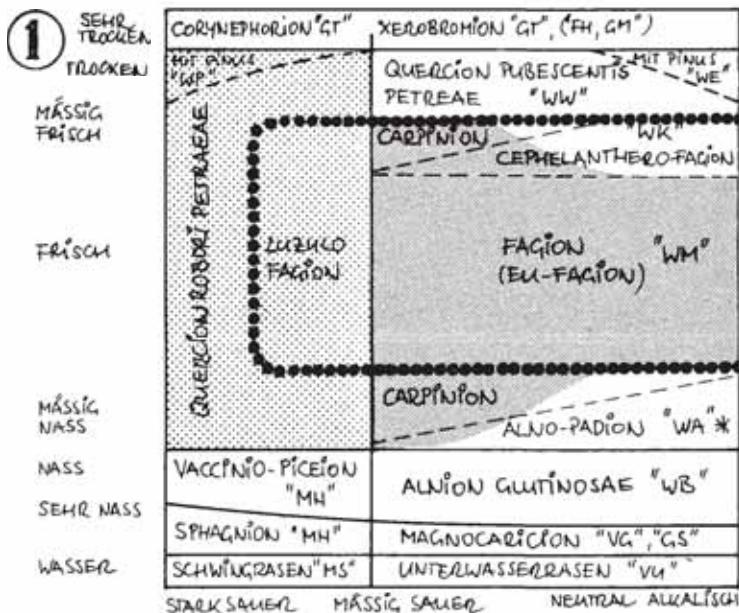 1
SEHR
TROCKEN
TROCKEN
MÄSSIG
FRISCH
FRISCH
MÄSSIG
NASS
NASS
SEHR NASS
WASSER
CORYNEPHORION "GT"
XEROBROMION "GT", (FH, GM")
MIT PINUS
"WP"
QUERCION PUBESCENTIS
PETREAE "WW"
MIT PINUS
"WE"
QUERCION ROBORI PETRAEAE
CARPINION
"WK"
CEPHELANTHERO-FAGION
LUZULO
FAGION
FAGION "WM"
(EU-FAGION)
CARPINION
ALNO-PADION "WA"*
VACCINIO-PICEION
"MH"
ALNION GLUTINOSAE "WB"
SPHAGNION "MH"
MAGNOCARICION "VG", "GS"
SCHWINGRASEN "MS"
UNTERWASSERRASEN "VU"
STARK SAUER MÄSSIG SAUER NEUTRAL ALKALISCH